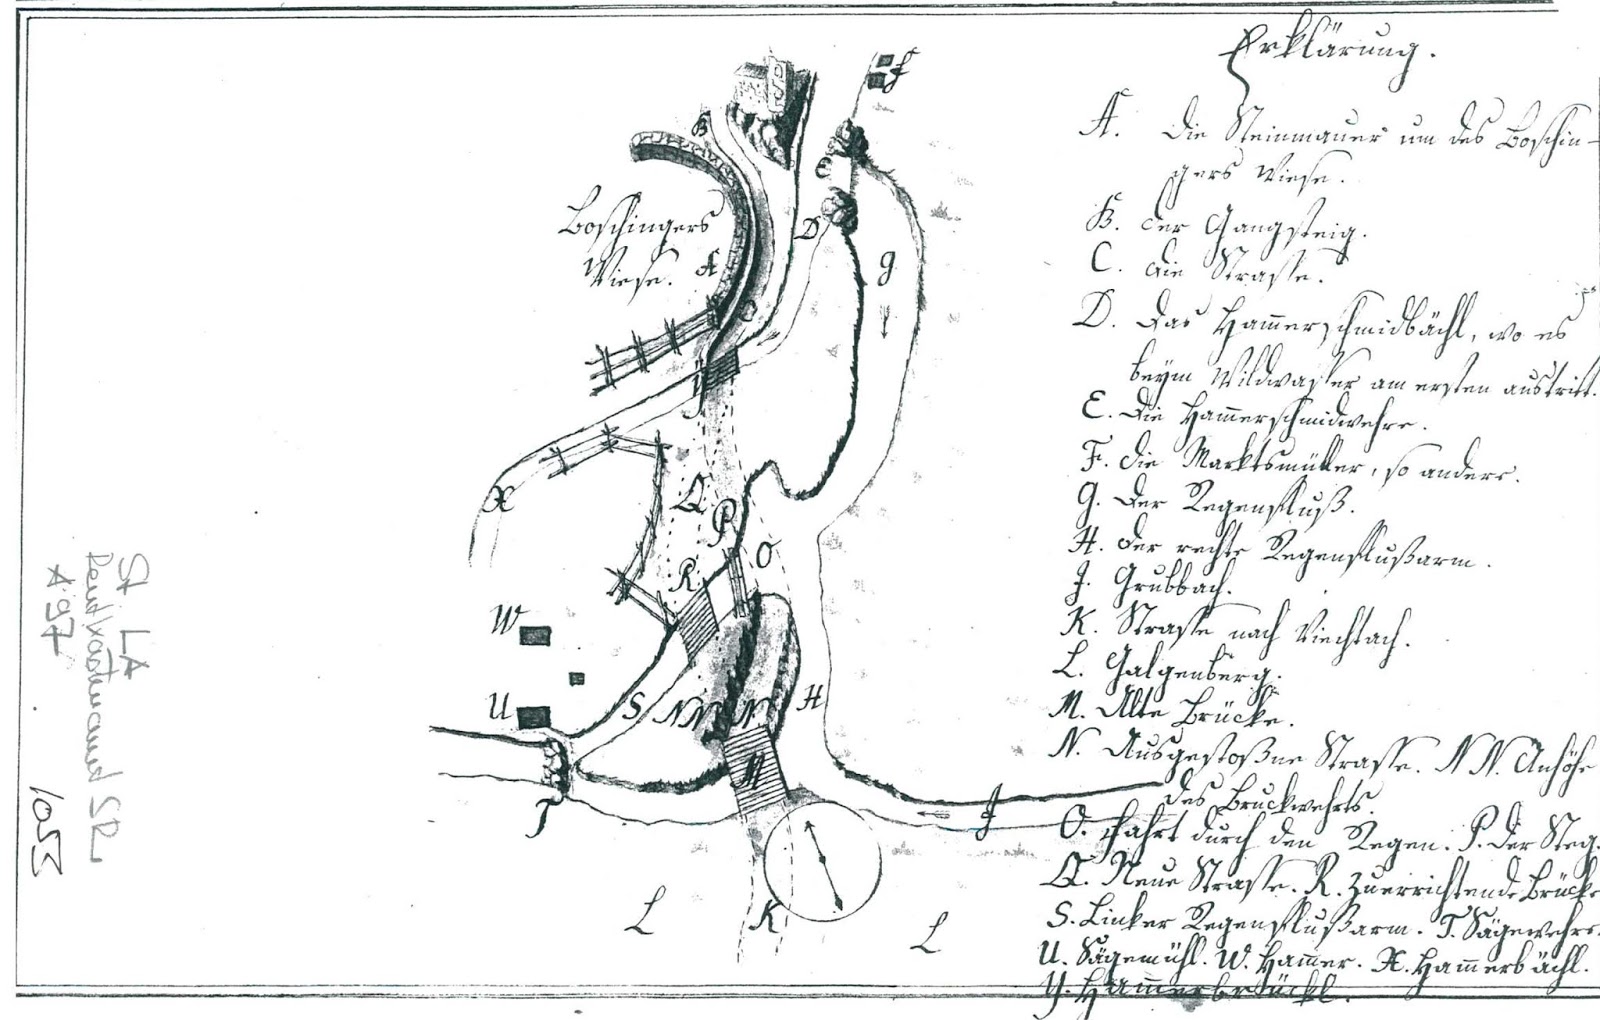 Erklärung.
A. Die Steinmauer um des Boschin-
gers Wiese.
B. Der Gangsteig.
C. Die Strasse.
D. Das Ham̄erschmidbächl, wo es
beÿm Wildwasser am ersten austritt.
E. Die Ham̄erschmidwehre.
F. Die Marktsmüller, so andere.
G. Der Regenfluß.
H. Der rechte Regenflußarm.
J. Grubbach.
K. Strasse nach Viechtach.
L. Galgenberg.
M. Alte Brücke.
N. Ausgestoßne Strasse. NN. Anhöhe
des Bruckwehrts.
O. Fahrt durch den Regen. P. Der Steg.
Q. Neue Strasse. R. Zuerrichtende Brücke
S. Linker Regenflußarm. T. Sägewehre.
U. Sägemühl. W. Ham̄er. X. Ham̄erbächl.
Y. Ham̄erbrückl.
F
B
E
Boschingers
Wiese.
A
D
G
C
Y
X
Q
P
O
R
W
U
S
NN
N
H
M
T
J
L
K
L
St LA
Rentkastenamt
A 97
1053